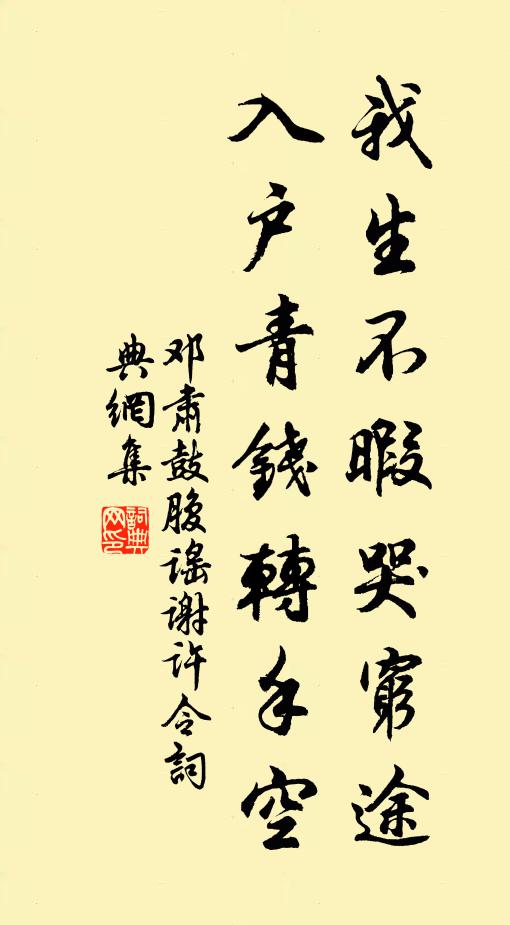 我生不暇哭窮途
入户青錢轉手空
邓肅鼓腹謡谢许令詞
典網集
詞典网印